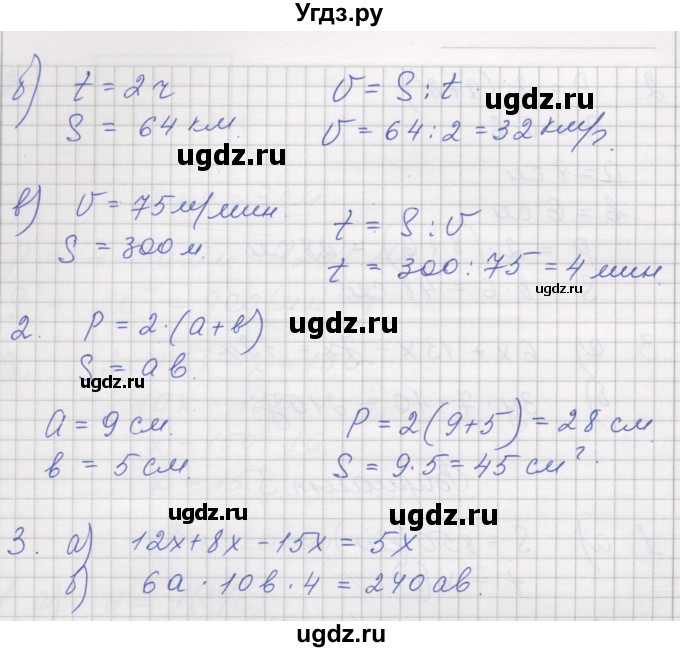 Угдз.ру
б) t = 2 ч V = S : t
ugdz.ru
S = 64 км. V = 64 : 2 = 32 км/ч.
ugdz.ru
в) V = 75 м/мин. t = S : V
ugdz.ru
S = 300 м. t = 300 : 75 = 4 мин.
ugdz.ru
2. P = 2·(a+в)
ugdz.ru
S = aв.
ugdz.ru
a = 9 см. P = 2(9+5) = 28 см
в = 5 см. S = 9·5 = 45 см².
ugdz.ru ugdz.ru
3. а) 12x+8x−15x = 5x
б) 6a·10в·4 = 240aв.
ugdz.ru
ugdz.ru